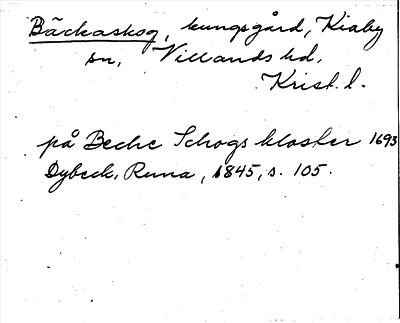 Bäckaskog, kungsgård, Kiaby
sn, Villands hd,
Krist. l.
på Beche Schogs kloster 1693
Dybeck, Runa, 1845, s. 105.